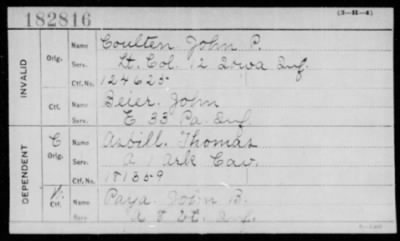 182816
(3-H-4)
INVALID
Orig. Name Coulter John P.
Serv. Lt. Col. 12 Iowa Inf.
Ctf. No. 124625
Ctf. Name Beier. John
E 33 Pa. Inf.
DEPENDENT
C Orig. Name Asbill. Thomas
Serv. A 1 Ark Cav.
Ctf. No. 181359
Ctf. Name Paya John B.
Serv. A 8 Vt. Inf.